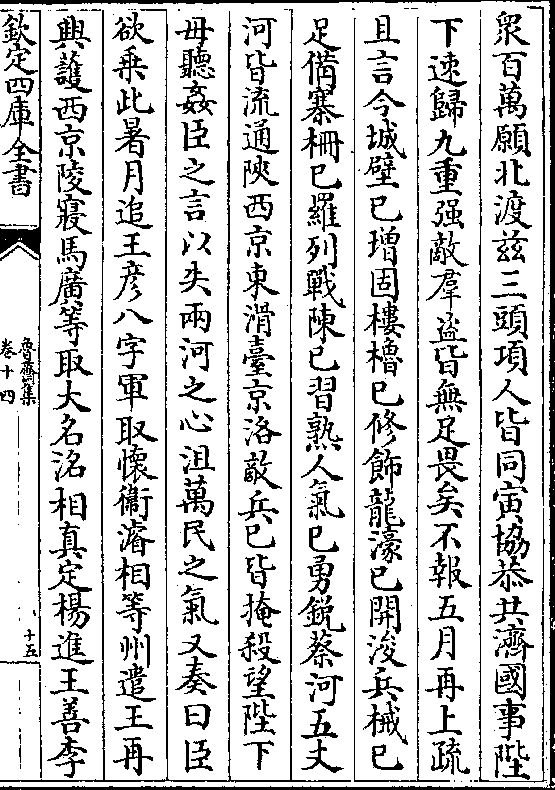 衆百萬願北渡兹三頭項人皆同寅協恭共濟國事陛
下速歸九重强敵羣盗皆無足畏矣不報五月再上疏
且言今城壁已增固樓櫓已修飾龍濠已開浚兵械已
足備寨柵已羅列戰陳已習熟人氣已勇鋭蔡河五丈
河皆流通陜西京東滑臺京洛敵兵已皆掩殺望陛下
毋聽姦臣之言以失兩河之心沮萬民之氣又奏曰臣
欲乗此暑月追王彦八字軍取懷衛濬相等州遣王再
興護西京陵寢馬廣等取大名洺相真定楊進王善李
欽定四庫全書
魯齋集
卷十四
十五